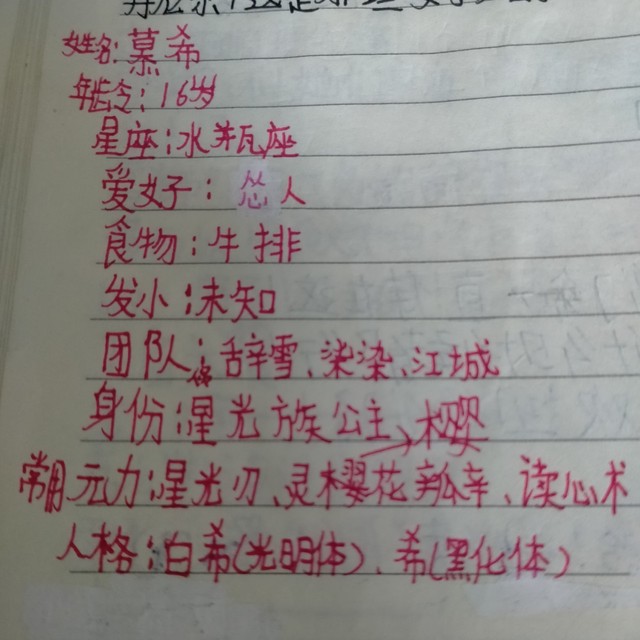 姓名:慕希
年龄:16岁
星座:水瓶座
爱好:怼人
食物:牛排
发小:未知
团队:辞雪、染染、江城
身份:星光族公主→樱
常用元力:星光刃、灵樱花瓣、读心术
人格:白希(光明体)、希(黑化体)